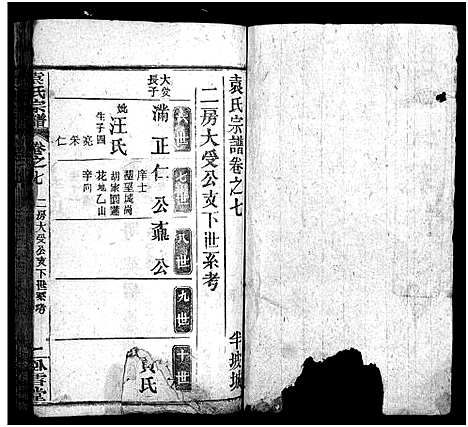 袁氏宗譜卷之七
半坡城
二房大受公支下世系考
六世
七世
八世
九世
十世
大受長子
滿正仁公
姚汪氏
生子四
亮
采
仁
庠士
葬望城崗
胡家
花地乙山
辛向
袁氏
袁氏宗譜
卷之七
二房大受公支下世系考
一